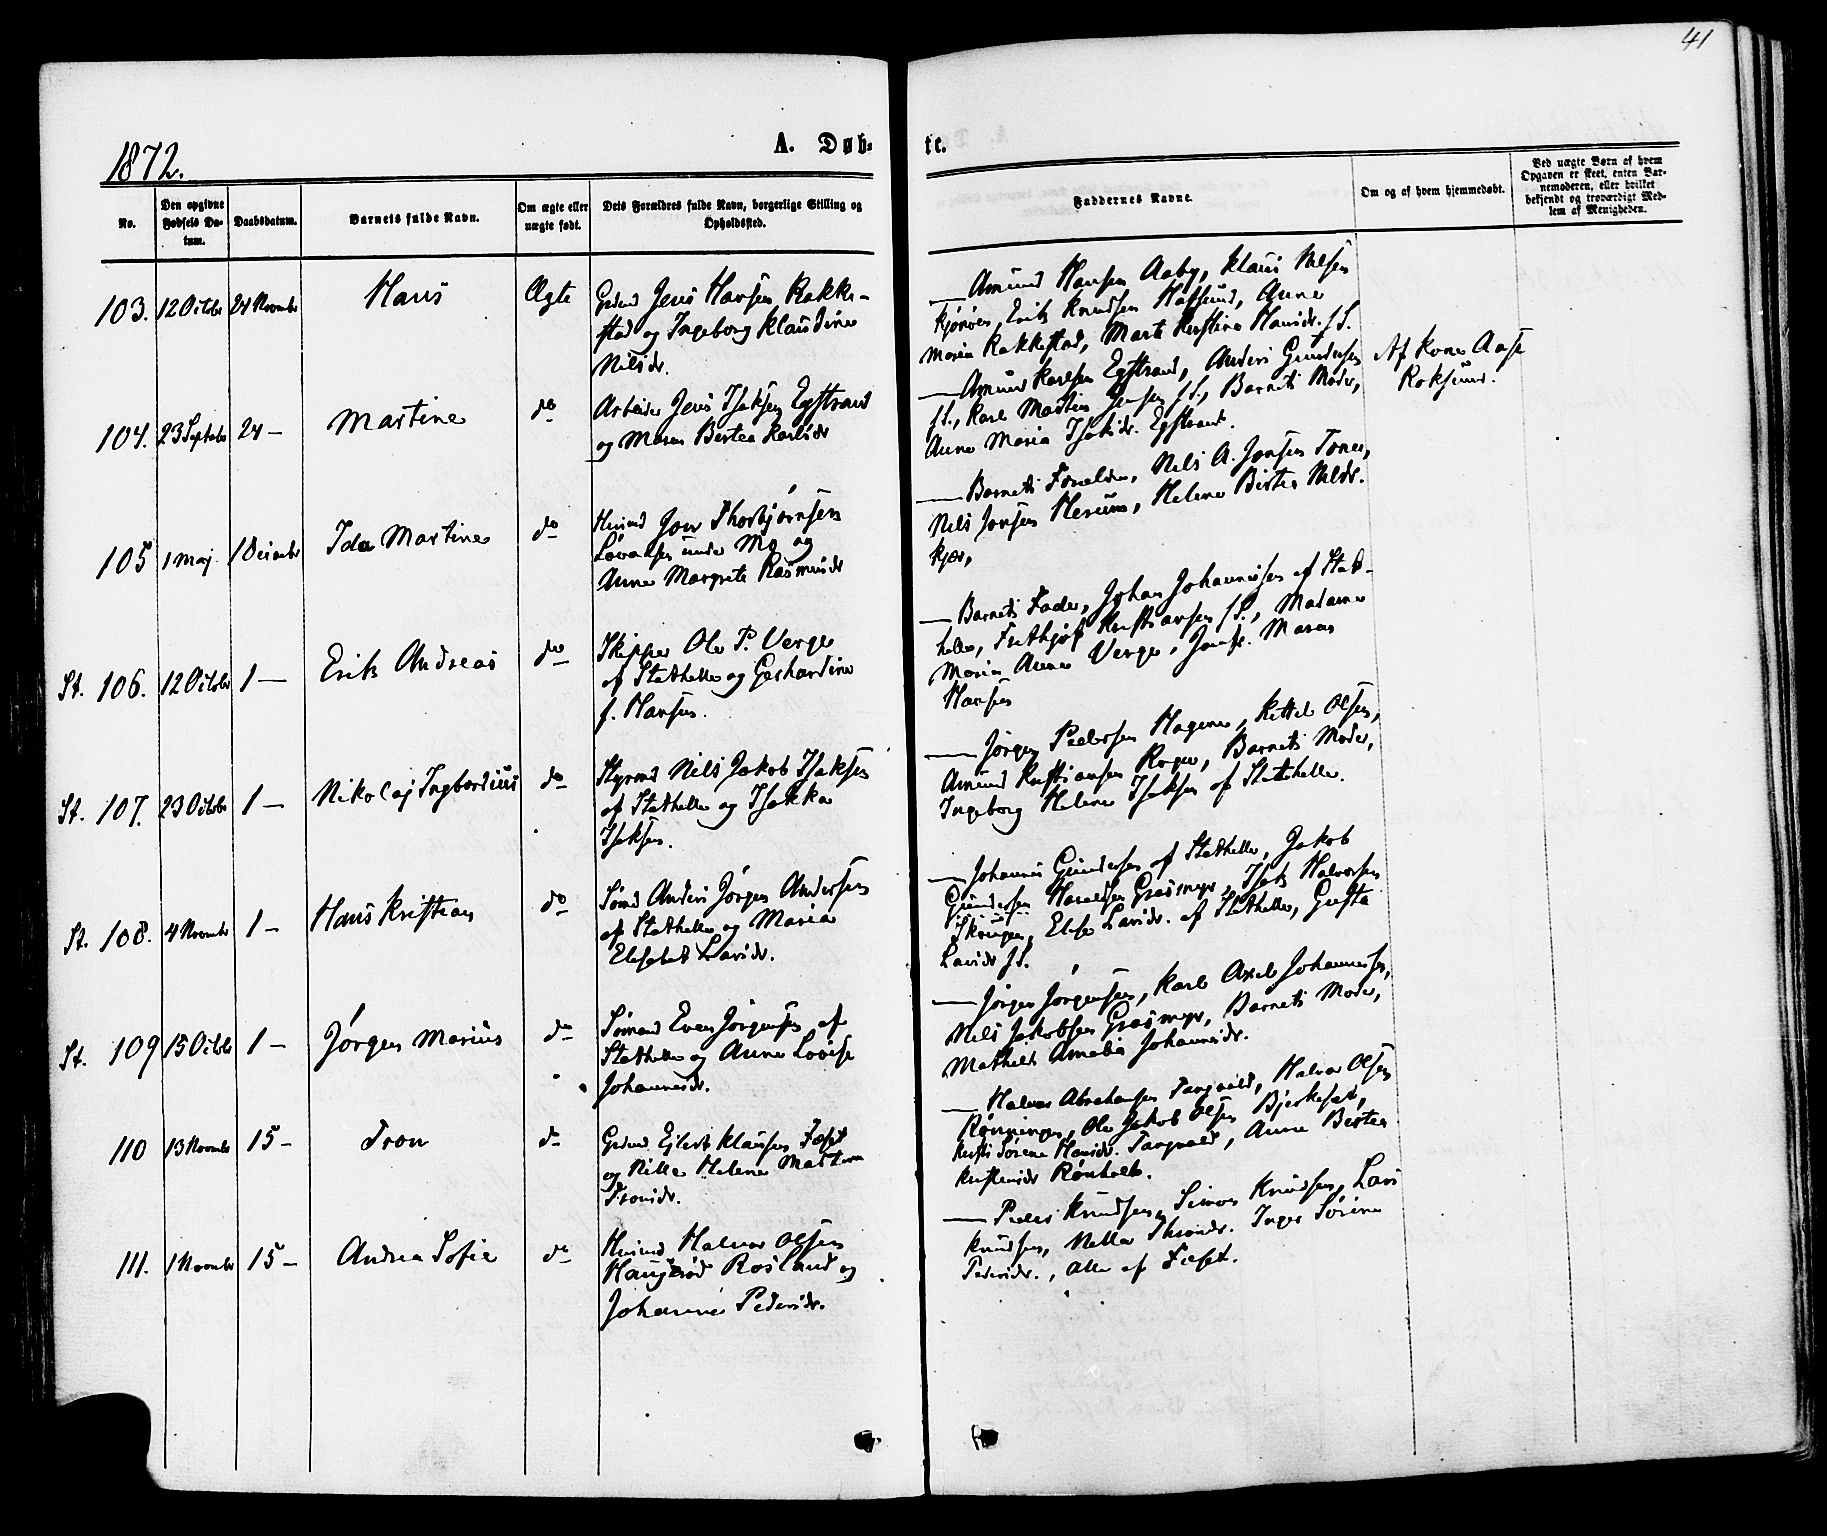 41
1872.
A. Døb-
te.
No.
Den opgivne Fødsels Datum.
Daabsdatum.
Barnets fulde Navn.
Om ægte eller uægte født.
Dets Forældres fulde Navn, borgerlige Stilling og Opholdssted.
Faddernes Navne.
Om og af hvem hjemmedøbt.
Ved uægte Børn af hvem Opgaven er skeet, enten Barnemoderen, eller hvilket bekjendt og troværdigt Medlem af Menigheden.
103. 12 Octobr 24 Novembr Hans Ægte
Jens Hansen Rakke-
stad og Ingeborg Klaudine
Nilsdr.
— Amund Hansen Aaby, Klaus Nilsen
Erik Knudsen Hafsund, Anne
Maria Rakkestad, Marte Kirstine Hansdr. sS.
104. 23 Septbr 24 — Martine do
Arbeider Jens Isaksen Egstrand
og Maren Bertea Karlsdr
— Amund Karlsen Egstrand, Anders Gundersen
sS., Karl Martin Jensen sS., Barnets Moder,
Anne Maria Isaksdr. Egstrand.
Af Kone Aase
Roksund.
105 1 Maj 1 Decembr Ida Martine do
Husmd Jon Thorbjørnsen
under Mo og
Anne Margrete Rasmusdr
— Barnets Forældre, Nils A. Jonsen Tonen,
Nils Jonsen Herum, Helene Birtea Nilsdr.
Kjær,
St. 106. 12 Octobr 1 — Erik Andreas do
Skipper Ole P. Verge
af Stathelle og Gerhardine
f. Hansen.
— Barnets Fader, Johan Johannesen af Stat-
helle, Frithjof Kristiansen sS., Madame
Maria Anne Verge, Jomfr. Maren
Hansen
St. 107. 23 Octobr 1 — Nikolaj Ingbardius do
Styrmd Nils Jakob Isaksen
af Stathelle og Isakka
Isaksen.
— Jørgen Pedersen Hagene, Kittel Olsen,
Amund Kristiansen Rogn, Barnets Moder,
Ingeborg Helene Isaksen af Stathelle.
St. 108. 4 Novembr 1 — Hans Kristian do
Sømd Anders Jørgen Andersen
af Stathelle og Maria
Elisabet Larsdr.
— Johannes Gundersen af Stathelle, Jakob
Gundersen Grasmyr, Isak Halvorsen
Elise Larsdr. af Stathelle, Gusta
Larsdr sS.
St. 109 15 Octobr 1 — Jørgen Marius do
Sømand Even Jørgensen af
Stathelle og Anne Lovise
Johannesdr.
— Jørgen Jørgensen, Karl Axel Johannesen,
Nils Jakobsen Grasmyr, Barnets Moder,
Mathilde Amalia Johannesdr.
110 13 Novembr 15 — Tron do
Grdmd Ejlert Klausen Fæset
og Nille Helene Mathea
Tronsdr.
— Halvor Abrahamsen Tangvald, Halvor Olsen
Rønningen, Ole Jakob Olsen Bjerkeset,
Kirsti Sørine Hansdr. Tangvald, Anne Birtea
Kristensdr Rønholt.
111. 1 Novembr 15 — Andrea Sofie do
Husmd Halvor Olsen
Haugerød Rosland og
Johanne Pedersdr.
— Peder Knudsen, Simon Knudsen, Lars
Knudsen, Nille Thronsdr. Inger Sørine
Pedersdr., alle af Fæset.